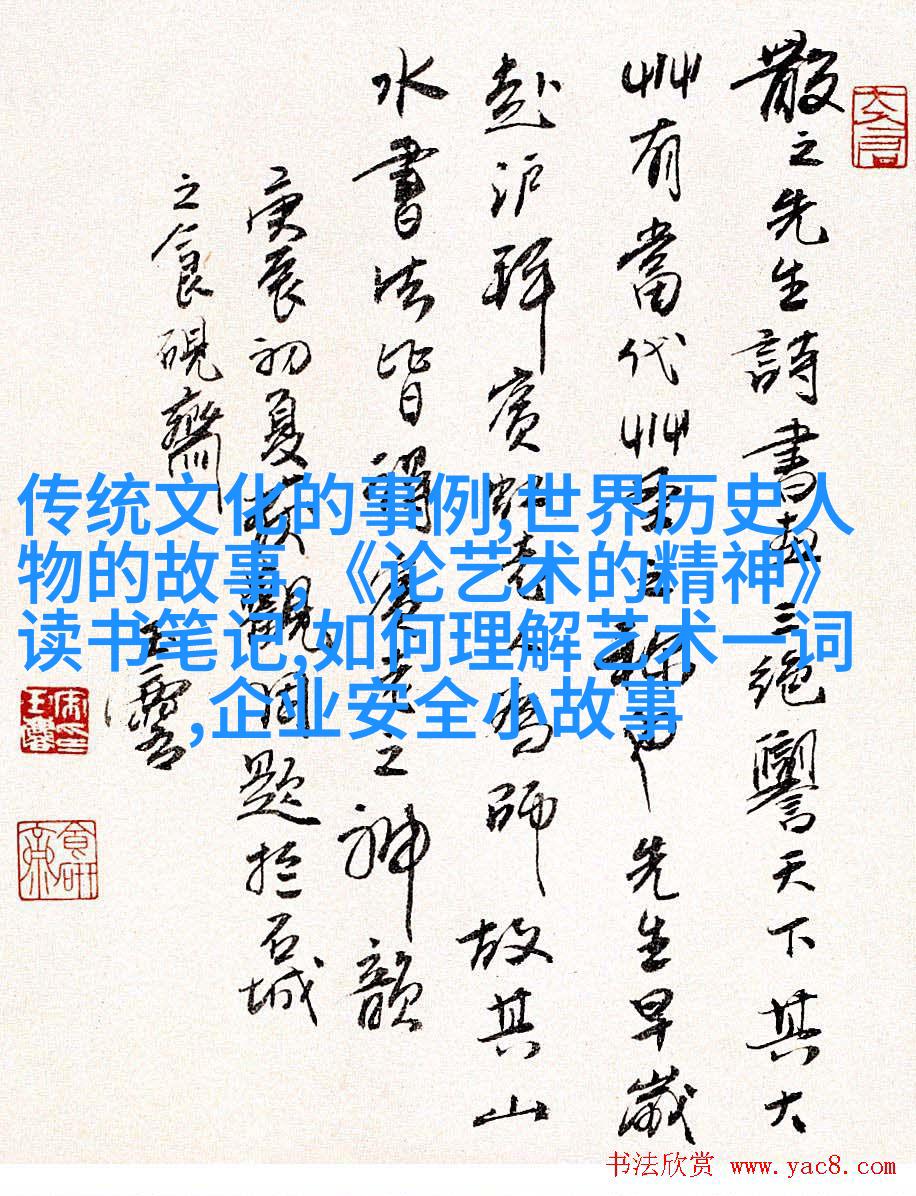 散之先生詩書畫三絕譽天下其大
艸有當代艸聖之称中先生早歲
赴沪拜賓虹老人為師故其山
水書法皆得賓老之神韻
庚辰初夏获觀因題於石城
之食硯齋
传统文化的事例,世界历史人
物的故事,《论艺术的精神》
读书笔记,如何理解艺术一词
,企业安全小故事
书法欣赏 www.yac8.com